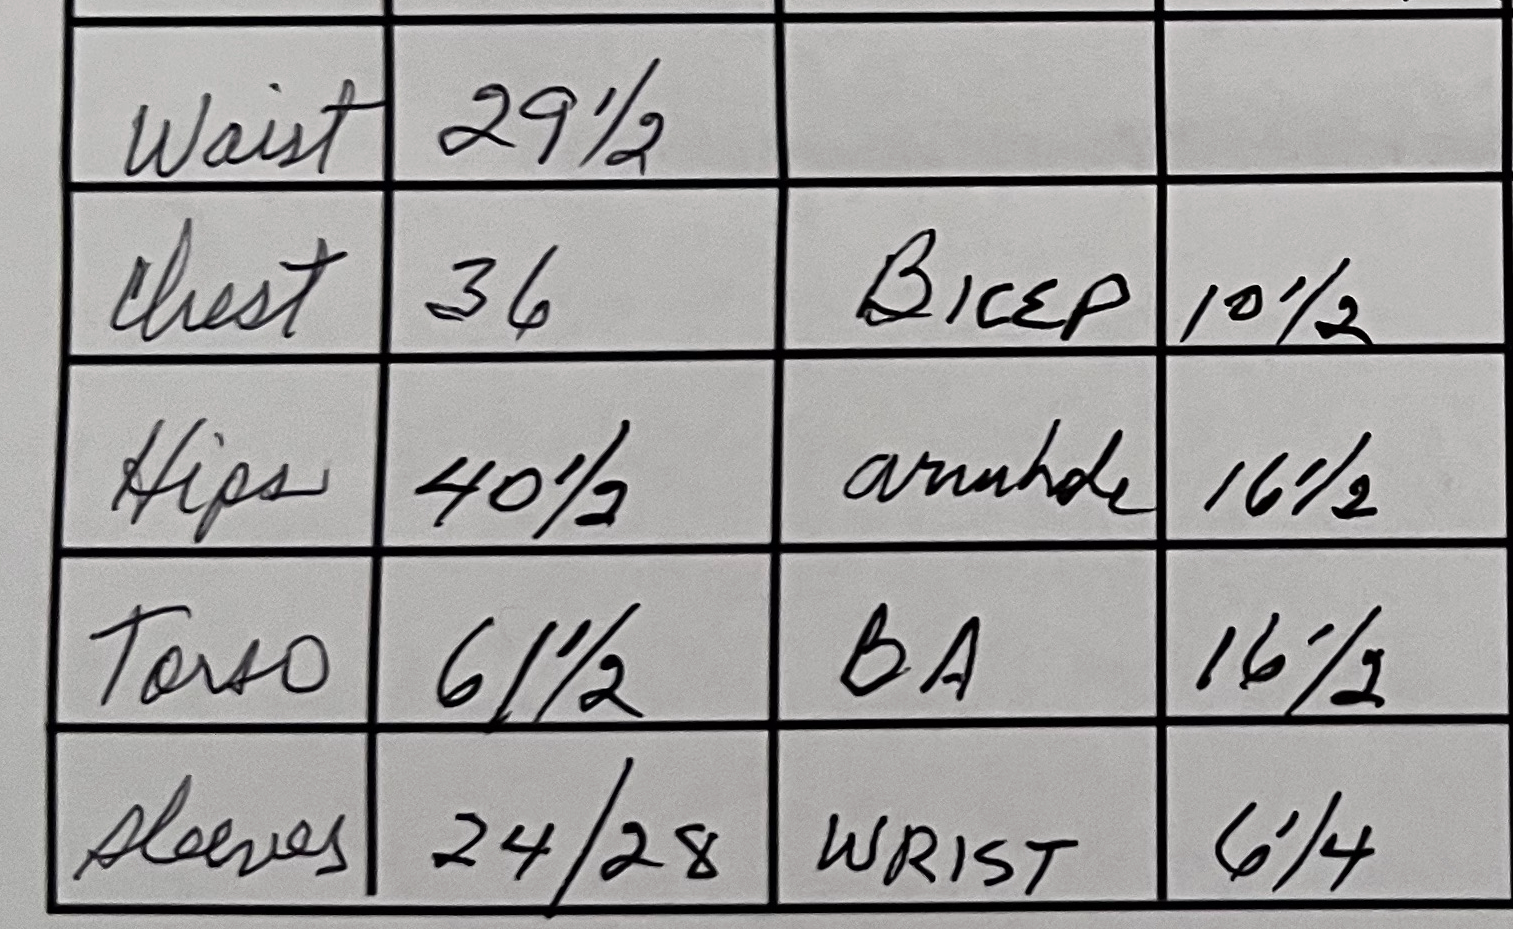 Waist 29 1/2
Chest 36 BICEP 10 1/2
Hips 40 1/2 armhole 16 1/2
Torso 61 1/2 BA 16 1/2
sleeves 24/28 WRIST 6 1/4